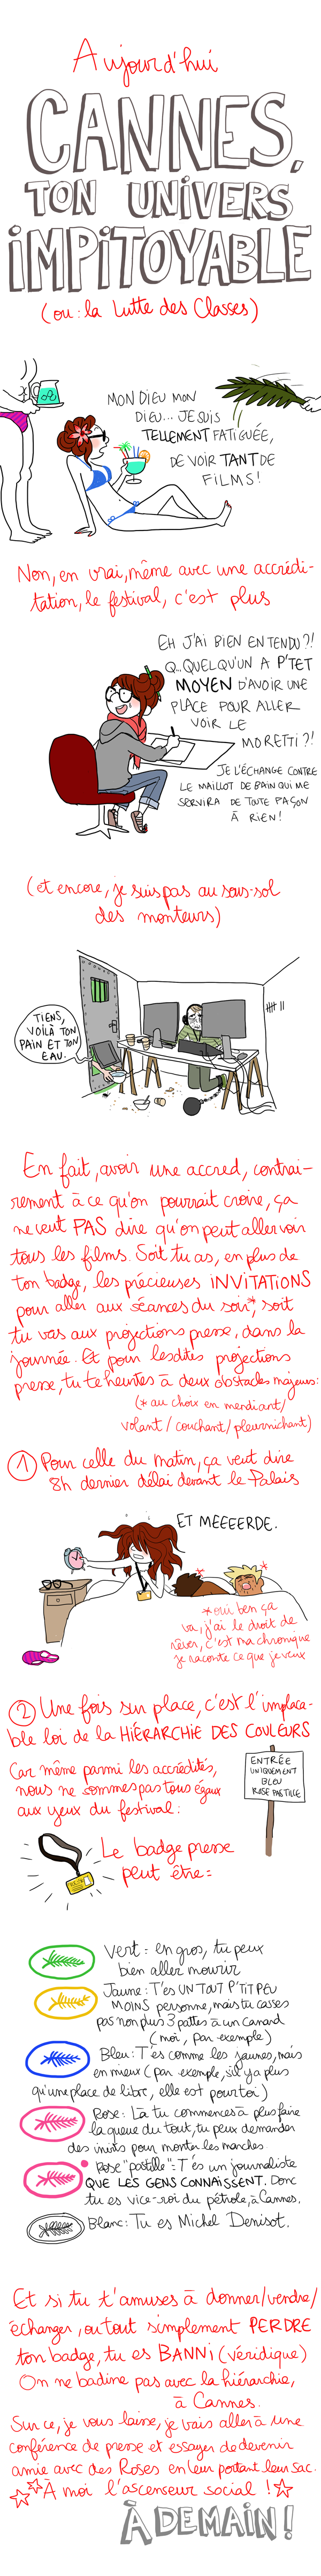 Aujourd'hui
CANNES,
TON UNIVERS
IMPITOYABLE
(ou : la Lutte des Classes)
MON DIEU MON
DIEU... JE SUIS
TELLEMENT FATIGUÉE,
DE VOIR TANT DE
FILMS !
Non, en vrai, même avec une accrédi-
tation, le festival, c'est plus
EH J'AI BIEN ENTENDU ?!
Q.. QUELQU'UN A P'TET
MOYEN D'AVOIR UNE
PLACE POUR ALLER
VOIR LE
MORETTI ?!
JE L'ÉCHANGE CONTRE
LE MAILLOT DE BAIN QUI ME
SERVIRA DE TOUTE FAÇON
À RIEN !
(et encore, je suis pas au sous-sol
des monteurs)
TIENS,
VOILÀ TON
PAIN ET TON
EAU.
En fait, avoir une accred, contrai-
rement à ce qu'on pourrait croire, ça
ne veut PAS dire qu'on peut aller voir
tous les films. Soit tu as, en plus de
ton badge, les précieuses INVITATIONS
pour aller aux séances du soir*, soit
tu vas aux projections presse, dans la
journée. Et pour lesdites projections
presse, tu te heurtes à deux obstacles majeurs :
(* au choix en mendiant/
volant / couchant / pleurnichant)
1 Pour celle du matin, ça veut dire
8h dernier délai devant le Palais
ET MEEEERDE.
* oui ben ça
va, j'ai le droit de
rêver, c'est ma chronique
je raconte ce que je veux
2 Une fois sur place, c'est l'implaca-
ble loi de la HIÉRARCHIE DES COULEURS
Car même parmi les accrédités,
nous ne sommes pas tous égaux
aux yeux du festival :
ENTRÉE
UNIQUEMENT
BLEU
ROSE PASTILLE
Le badge presse
peut être :
Vert : en gros, tu peux
bien aller mourir
Jaune : T'es UN TOUT P'TIT PEU
MOINS personne, mais tu casses
pas non plus 3 pattes à un canard
(moi, par exemple)
Bleu : T'es comme les jaunes, mais
en mieux (par exemple, s'il y a plus
qu'une place de libre, elle est pour toi)
Rose : Là tu commences à plus faire
la queue du tout, tu peux demander
des invits pour monter les marches
Rose "pastille" : T'es un journaliste
QUE LES GENS CONNAISSENT. Donc
tu es vice-roi du pétrole, à Cannes.
Blanc : Tu es Michel Denisot.
Et si tu t'amuses à donner/vendre/
échanger, ou tout simplement PERDRE
ton badge, tu es BANNI (véridique)
On ne badine pas avec la hiérarchie,
à Cannes.
Sur ce, je vous laisse, je vais aller à une
conférence de presse et essayer de devenir
amie avec des Roses en leur portant leur sac.
À moi l'ascenseur social !
À DEMAIN !